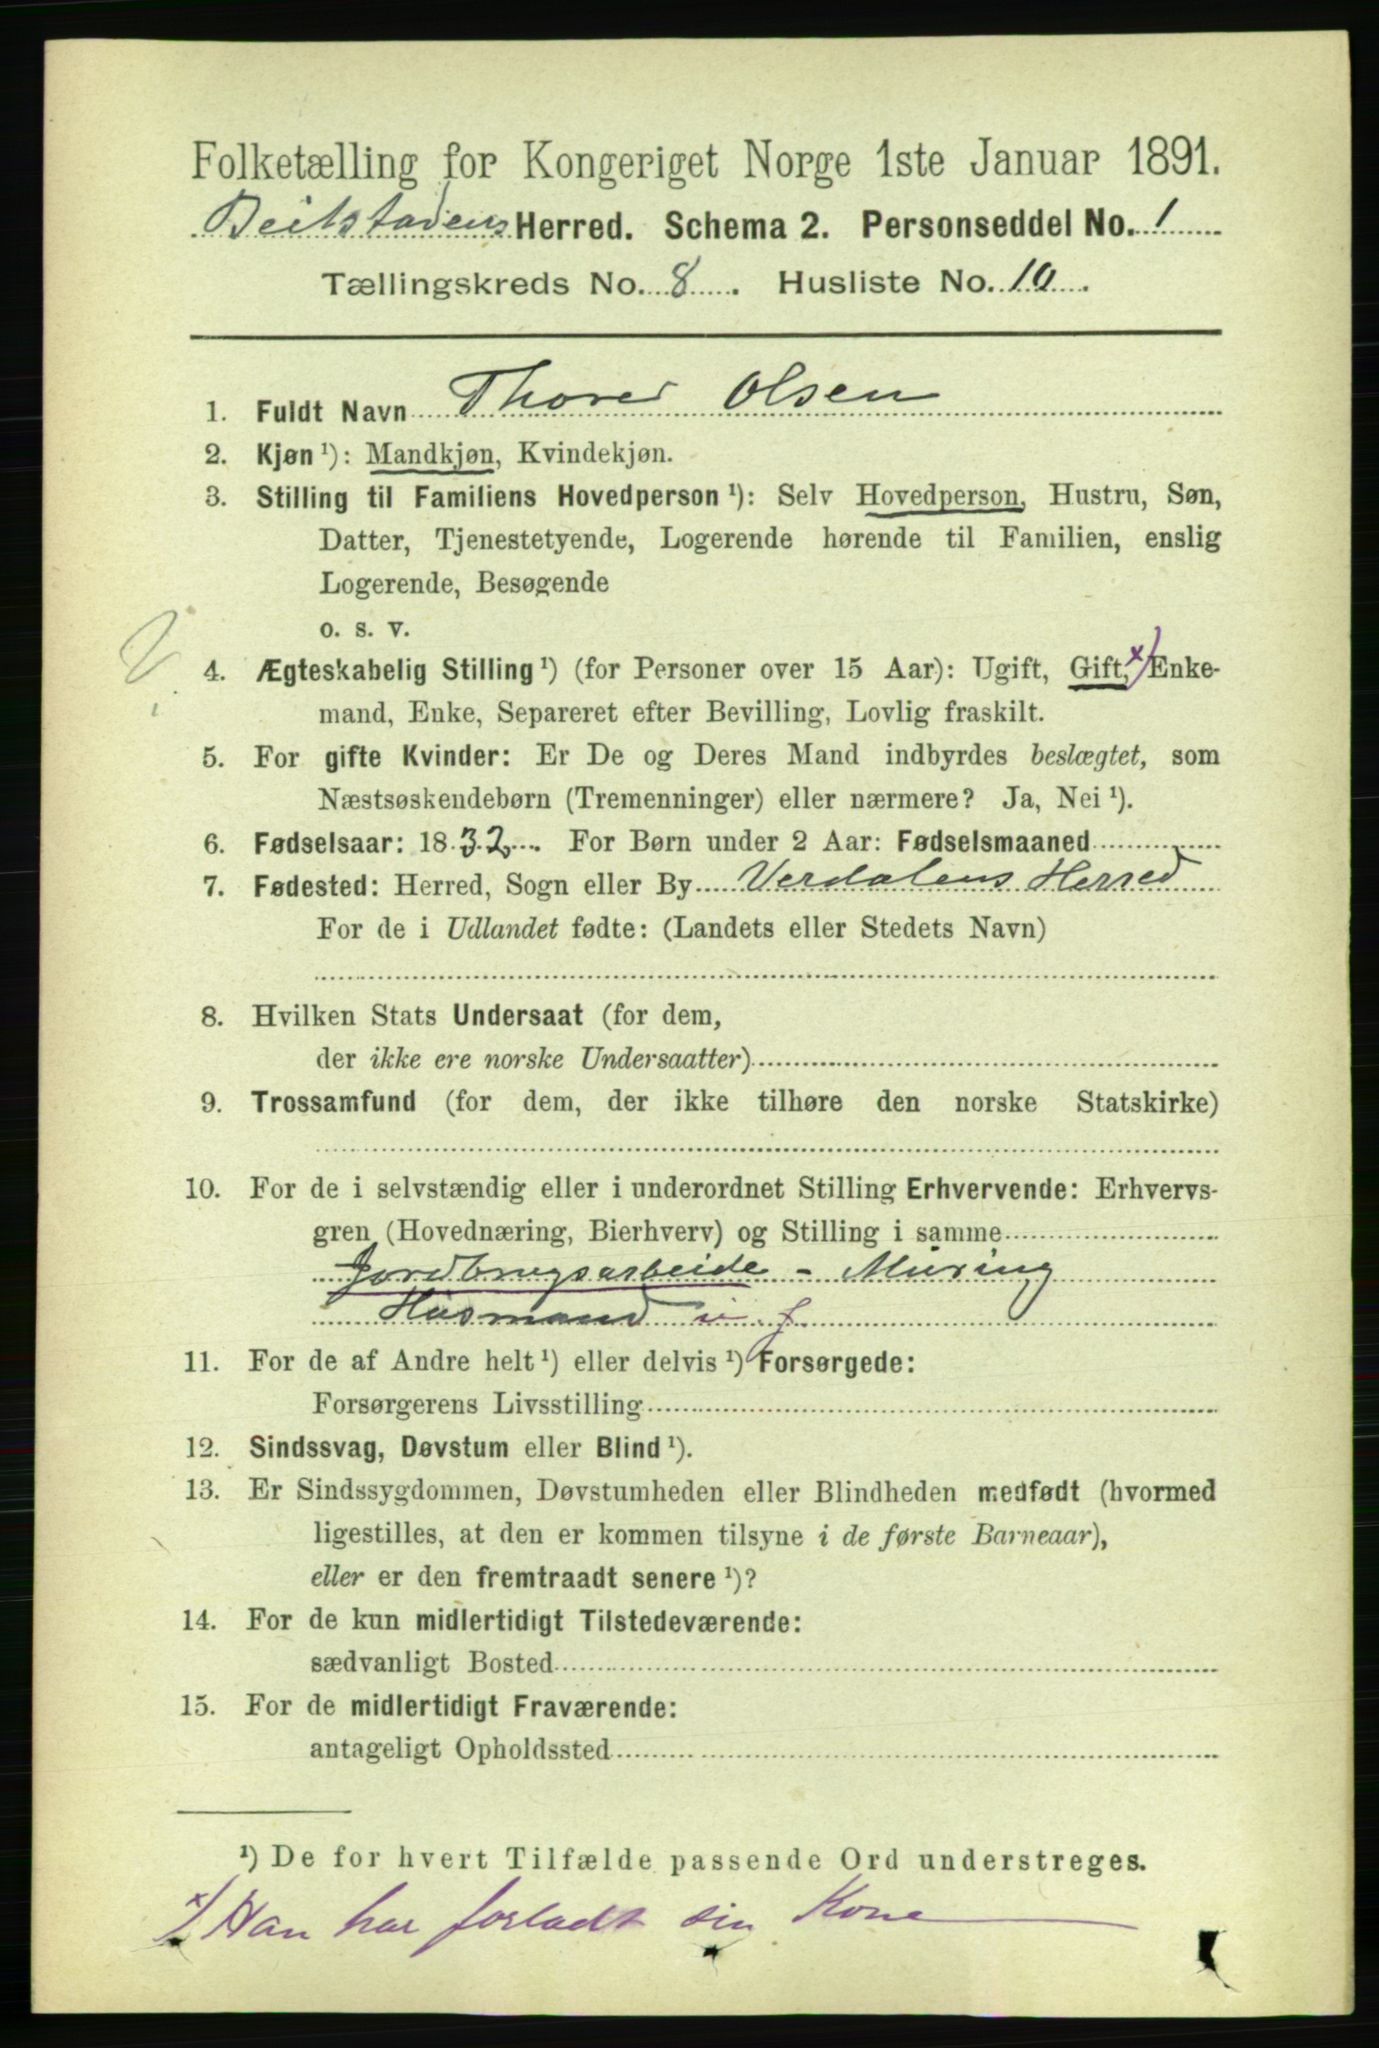 Folketælling for Kongeriget Norge 1ste Januar 1891.
Beitstadens Herred. Schema 2. Personseddel No. 1
Tællingskreds No. 8. Husliste No. 10.
1. Fuldt Navn Thorer Olsen
2. Kjøn ¹): Mandkjøn, Kvindekjøn.
3. Stilling til Familiens Hovedperson ¹): Selv Hovedperson, Hustru, Søn,
Datter, Tjenestetyende, Logerende hørende til Familien, enslig
Logerende, Besøgende
o. s. v.
4. Ægteskabelig Stilling ¹) (for Personer over 15 Aar): Ugift, Gift, x) Enke-
mand, Enke, Separeret efter Bevilling, Lovlig fraskilt.
5. For gifte Kvinder: Er De og Deres Mand indbyrdes beslægtet, som
Næstsøskendebørn (Tremenninger) eller nærmere? Ja, Nei ¹).
6. Fødselsaar: 1832. For Børn under 2 Aar: Fødselsmaaned
7. Fødested: Herred, Sogn eller By Verdalens Herred
For de i Udlandet fødte: (Landets eller Stedets Navn)
8. Hvilken Stats Undersaat (for dem,
der ikke ere norske Undersaatter)
9. Trossamfund (for dem, der ikke tilhøre den norske Statskirke)
10. For de i selvstændig eller i underordnet Stilling Erhvervende: Erhvervs-
gren (Hovednæring, Bierhverv) og Stilling i samme
Jordbrugsarbeide - Muring
Husmand u. j
11. For de af Andre helt ¹) eller delvis ¹) Forsørgede:
Forsørgerens Livsstilling
12. Sindssvag, Døvstum eller Blind ¹).
13. Er Sindssygdommen, Døvstumheden eller Blindheden medfødt (hvormed
ligestilles, at den er kommen tilsyne i de første Barneaar),
eller er den fremtraadt senere ¹)?
14. For de kun midlertidigt Tilstedeværende:
sædvanligt Bosted
15. For de midlertidigt Fraværende:
antageligt Opholdssted
¹) De for hvert Tilfælde passende Ord understreges.
x) Han har forladt sin Kone